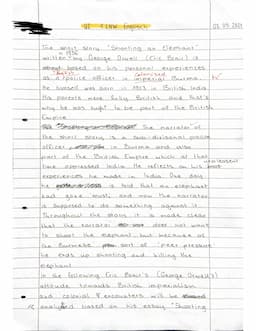 LK Englisch
The short story "Shooting an Elephant"
in 1936
written by George Orwell (Eric Blair) is
based on his personal experiences
as a police officer in imperial Burma.
He himself was born in 1903 in British India
His parents were fully British and that's
why he was to be part of the British
Empire.
The narrator of
the short story is a sub-divisional police
officer in Burma and also
part of the British Empire which at that
time oppressed India. He reflects on his
experiences he made in India. One day
he is told that an elephant
had gone must and now the narrator
is supposed to do something against it.
Throughout the story it is made clear
that the narrator does not want
to shoot the elephant but because of
the Burmese sort of "peer pressure"
he ends up shooting and killing the
elephant.
In the following Eric Blair's (George Orwell's)
attitude towards British imperialism
and colonial encounters will be
analysed based on his essay "Shooting